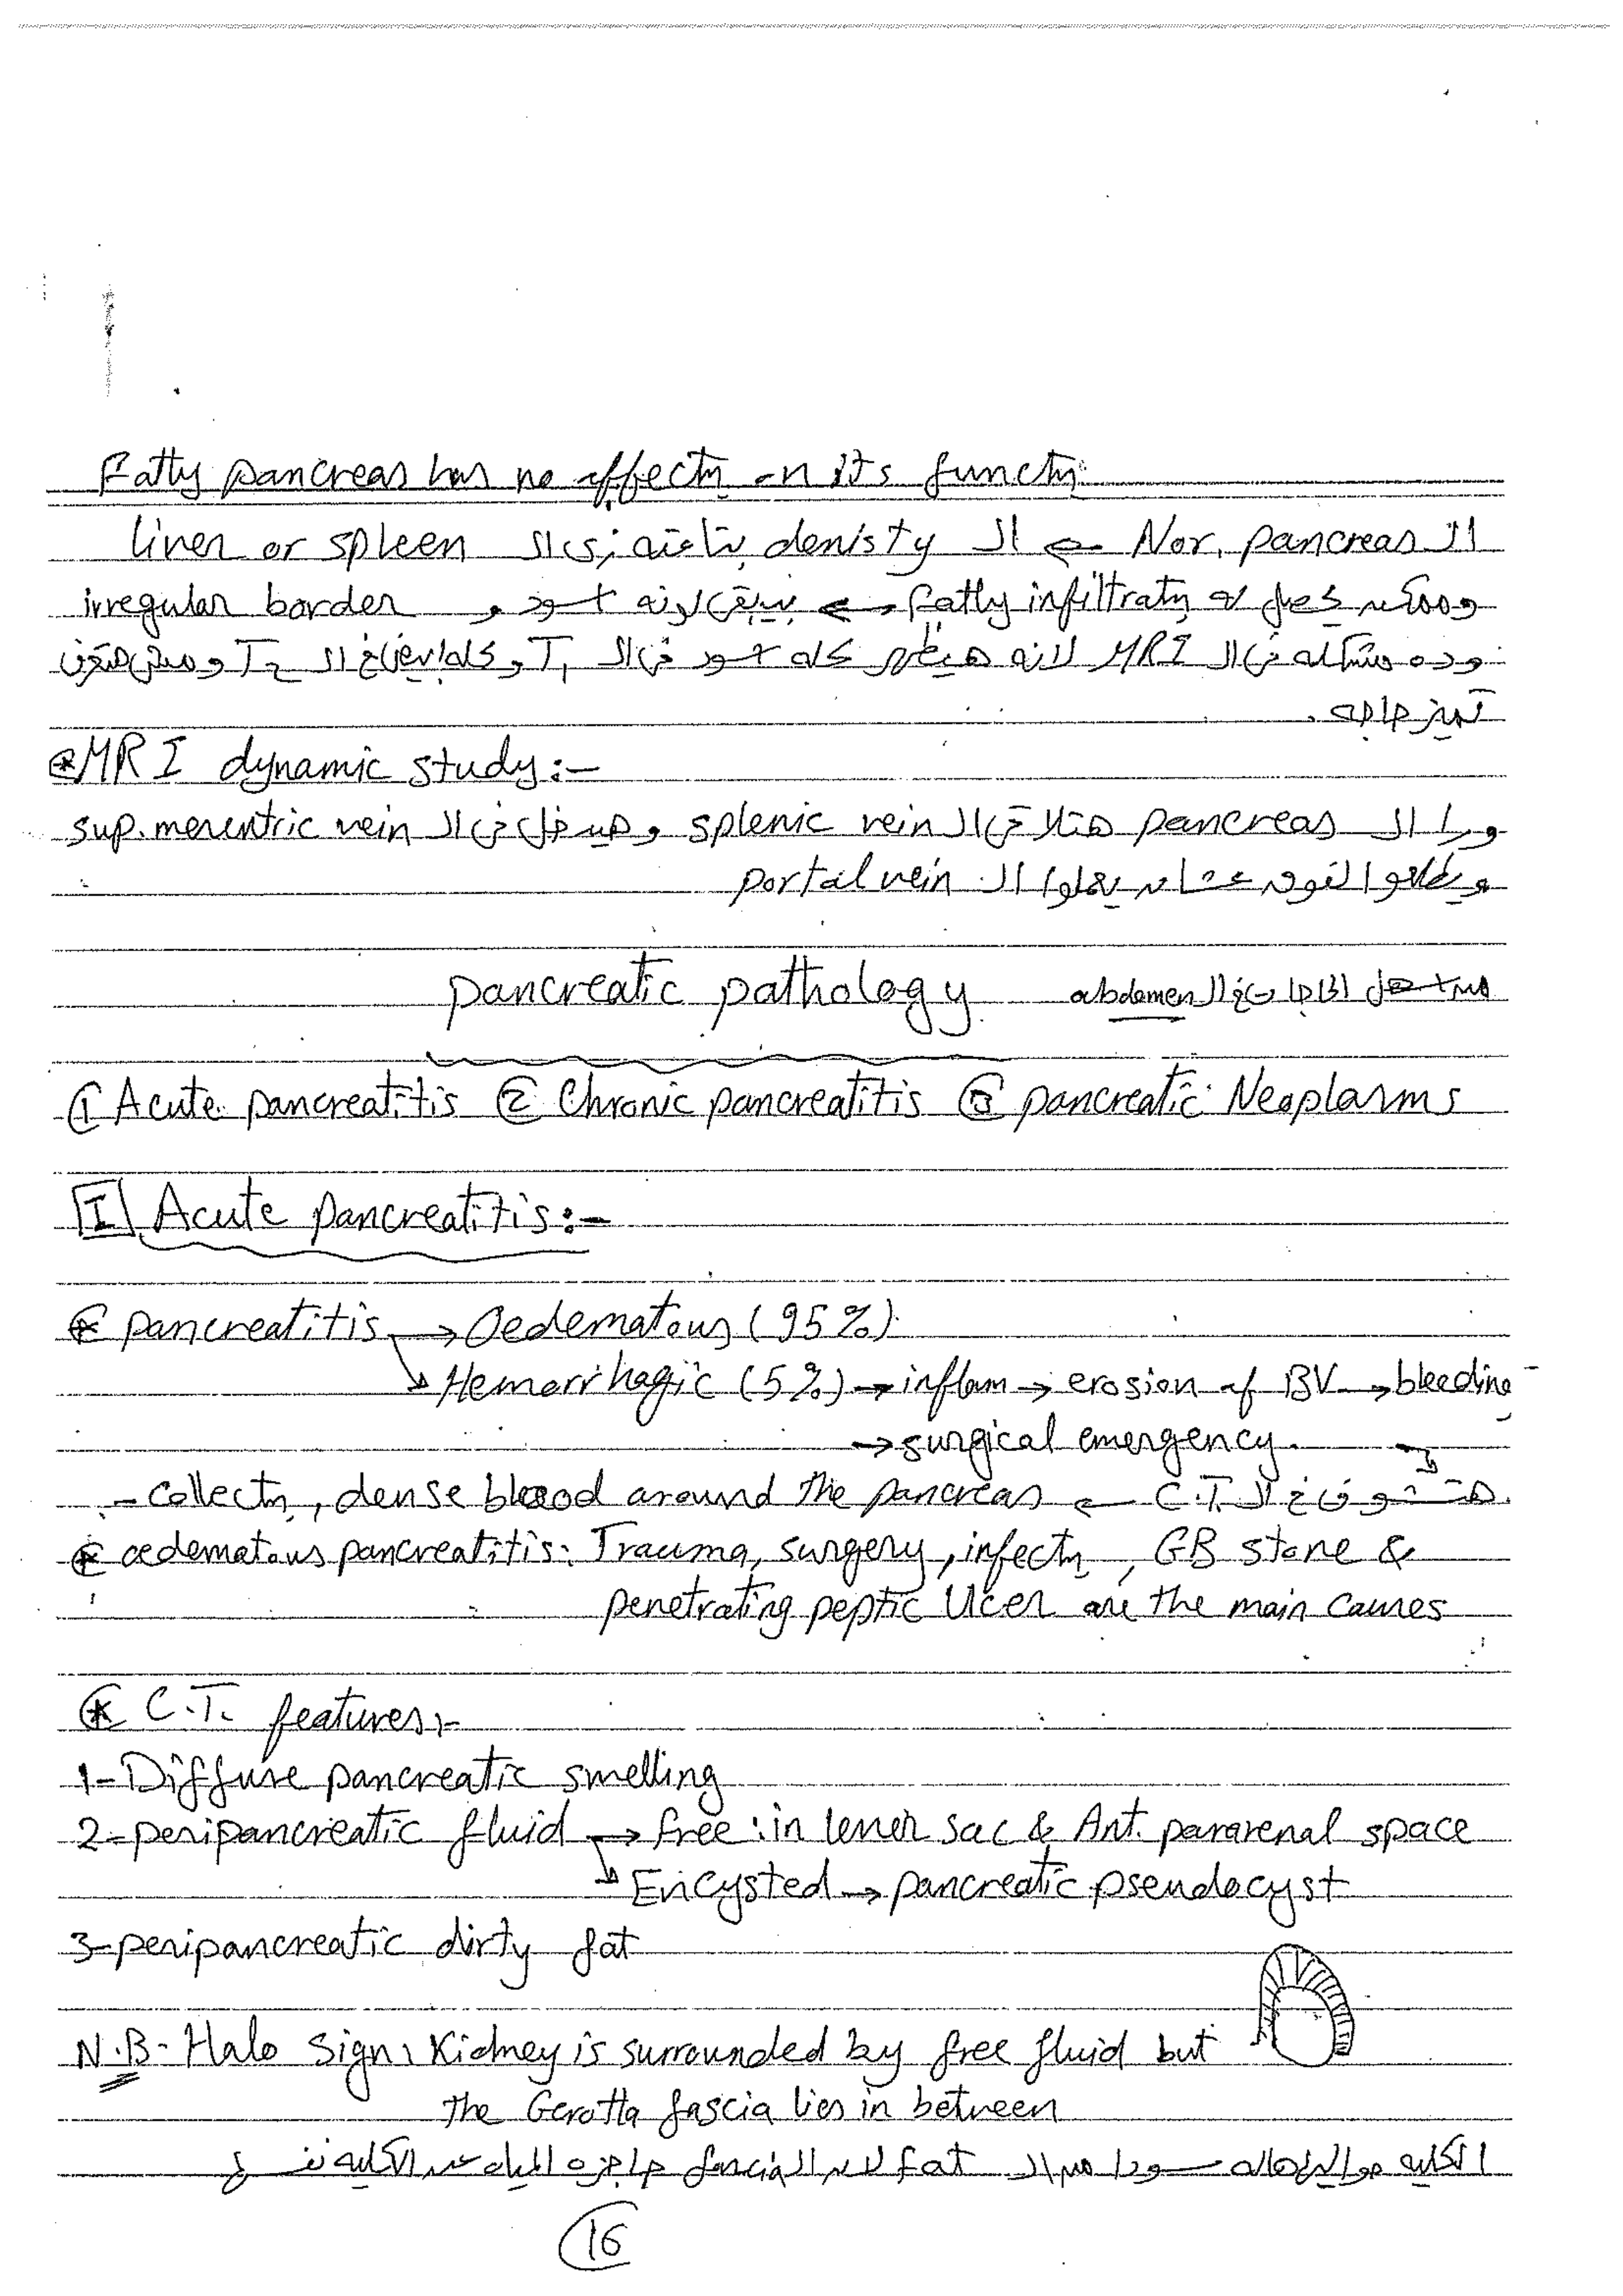 Fatty pancreas has no affectn on its functn
ال Nor. pancreas ⇐ ال denisty بتاعته زى ال liver or spleen
وممكن يحصل له fatty infiltratn ← يبقى لونه اسود و irregular border
وده مشكله فى ال MRI لانه هيظهر كله اسود فى ال T1 وكله ابيض فى ال T2 ومش هتعرف
تميز حاجه.
* MRI dynamic study:-
ورا ال pancreas هتلاقى ال splenic vein وهيدخل فى ال sup. mesentric vein
ويطلعوا لفوق عشان يعملوا ال portal vein
pancreatic pathology abdomen
① Acute pancreatitis ② Chronic pancreatitis ③ pancreatic Neoplasms
I Acute pancreatitis:-
* pancreatitis → Oedematous (95%)
↘ Hemorrhagic (5%) → inflam → erosion of BV → bleeding
→ surgical emergency.
هتشوف فى ال C.T. ← collectn, dense blood around the pancreas -
* oedematous pancreatitis: Trauma, surgery, infectn, GB stone &
penetrating peptic Ulcer are the main causes
* C.T. features:-
1- Diffuse pancreatic swelling
2- peripancreatic fluid → free: in lesser sac & Ant. pararenal space
↘ Encysted → pancreatic pseudocyst
3- peripancreatic dirty fat
N.B- Halo Sign: Kidney is surrounded by free fluid but
the Gerotta fascia lies in between
الكليه حواليها هاله سودا من ال fat لان ال fascia حاجزه المياه عن الكليه نفسها
16